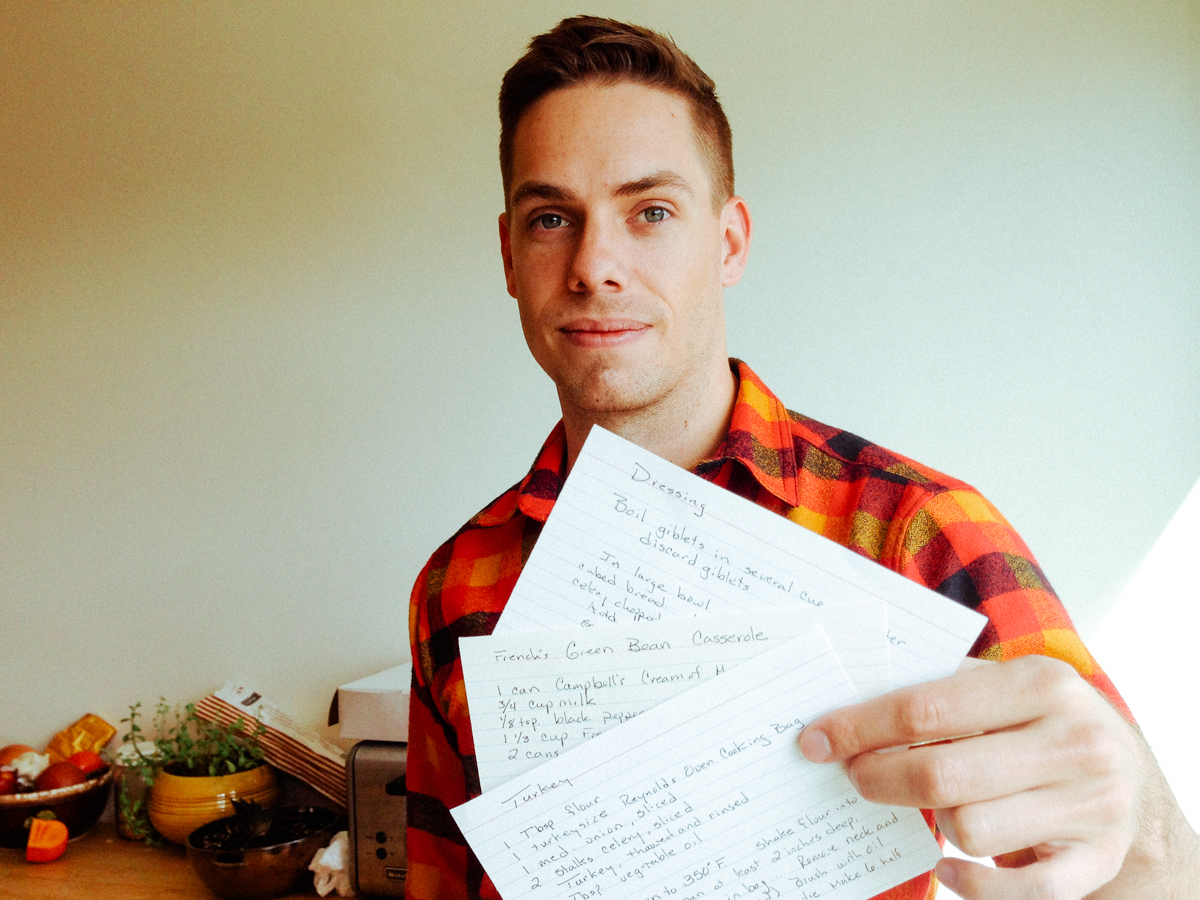 Dressing
Boil giblets in several cu
discard giblets
In large bowl
cubed bread.
celery chopped
Add
French's Green Bean Casserole
1 can Campbell's Cream of M
3/4 cup milk
1/8 tsp. black pepper
1 1/3 cup Fre
2 cans
Turkey
1 Tbsp flour
1 turkey size Reynolds Oven Cooking Bag
1 med. onion, sliced
2 stalks celery, sliced
Turkey, thawed and rinsed
Tbsp vegetable oil
en to 350°F. Shake flour into
pan at least 2 inches deep.
in bag. Remove neck and
Brush with oil
Make 6 half